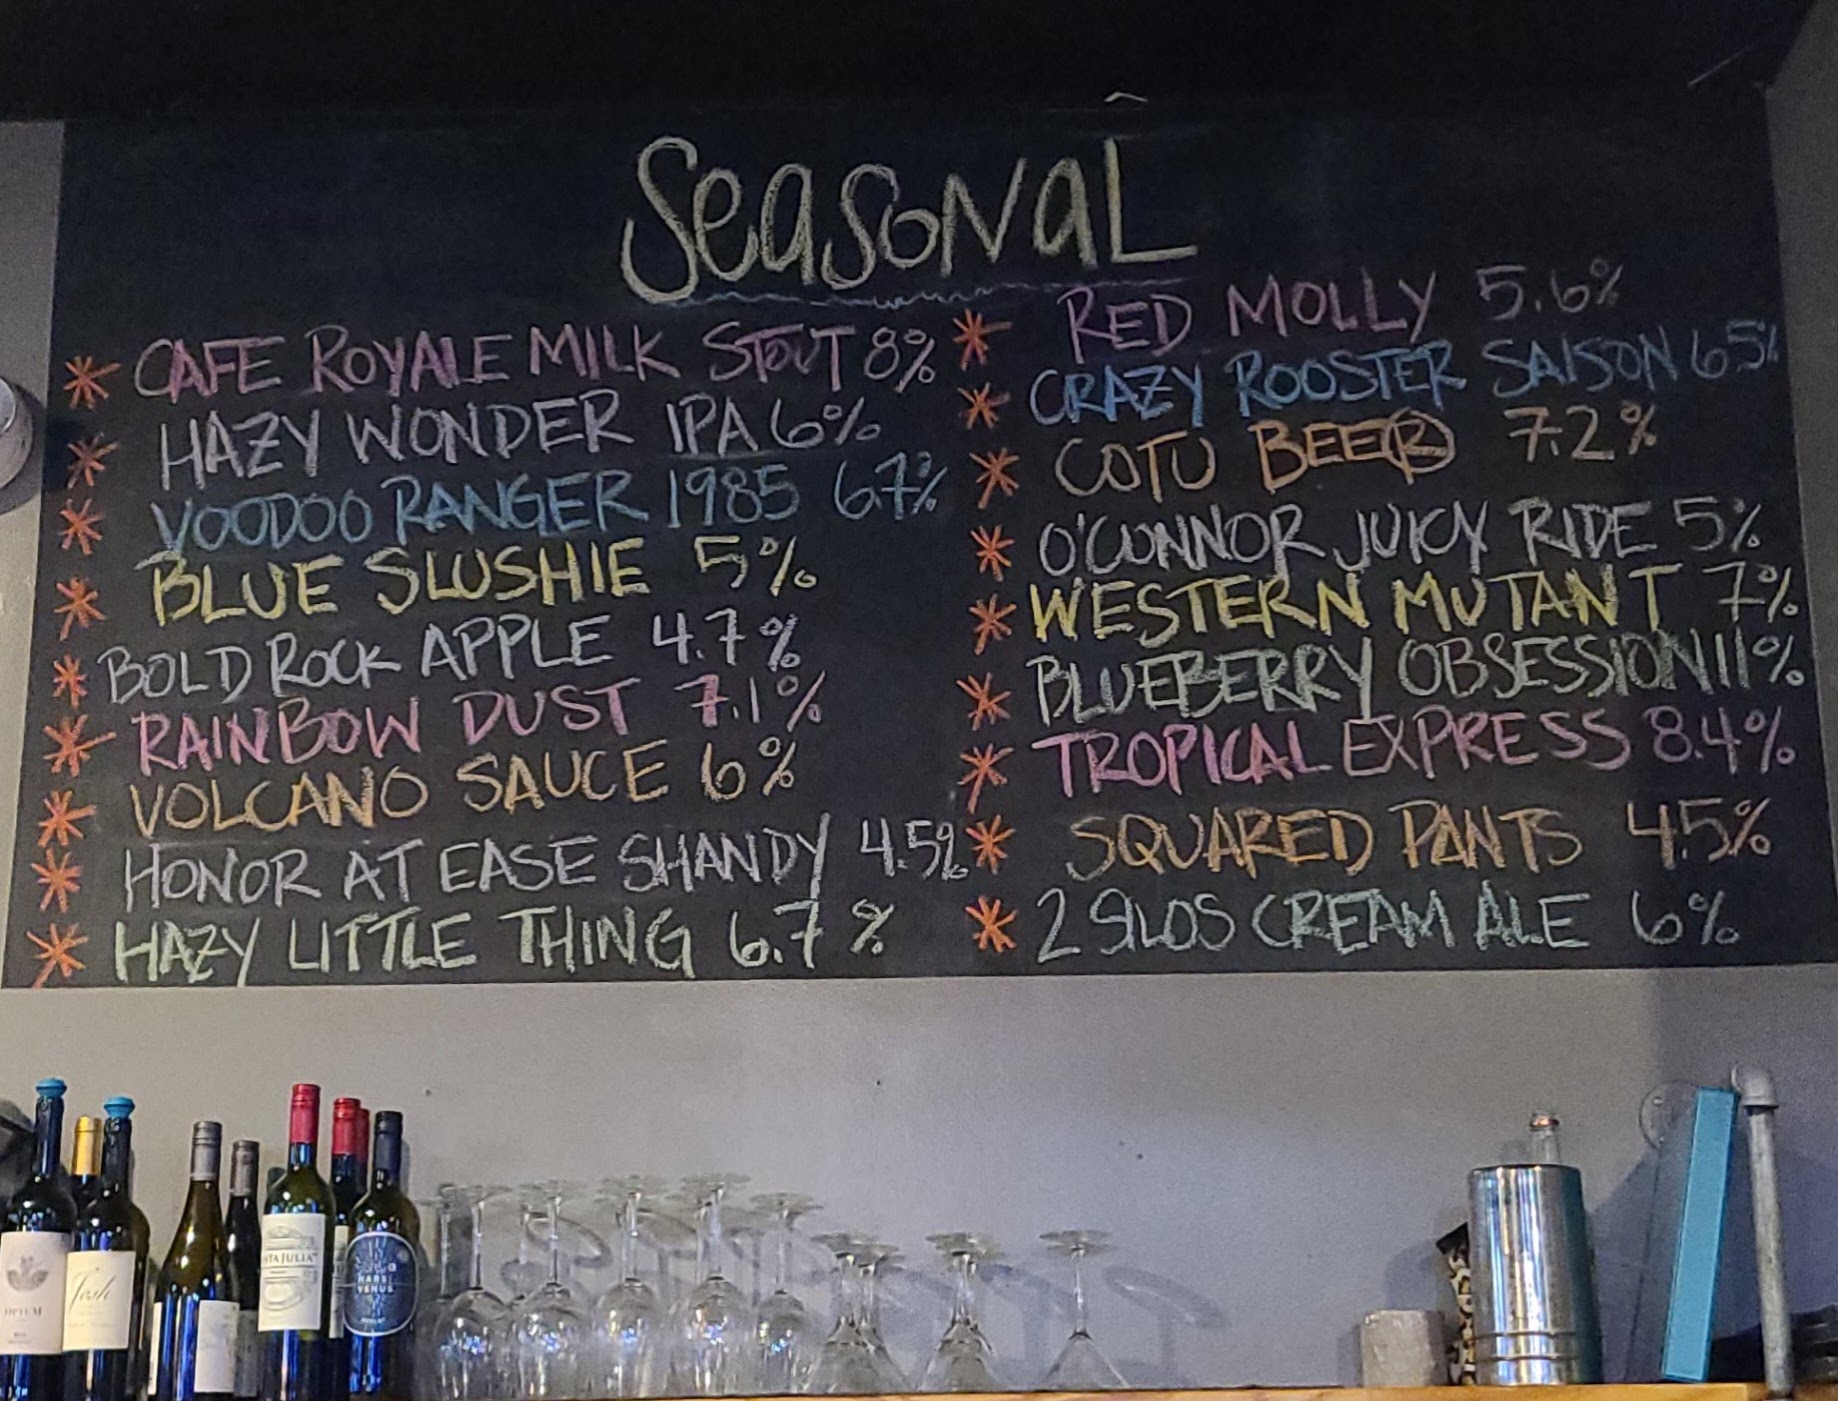 SeasoNaL
CAFE ROYALE MILK STOUT 8%
HAZY WONDER IPA 6%
VOODOO RANGER 1985 6.7%
BLUE SLUSHIE 5%
BOLD ROCK APPLE 4.7%
RAINBOW DUST 7.1%
VOLCANO SAUCE 6%
HONOR AT EASE SHANDY 4.5%
HAZY LITTLE THING 6.7%
RED MOLLY 5.6%
CRAZY ROOSTER SAISON 6.5%
COTU BEER 7.2%
O'CONNOR JUICY RIDE 5%
WESTERN MUTANT 7%
BLUEBERRY OBSESSION 11%
TROPICAL EXPRESS 8.4%
SQUARED PANTS 4.5%
2 SILOS CREAM ALE 6%
OPIUM
Josh
TA JULIA
MARS
VENUS